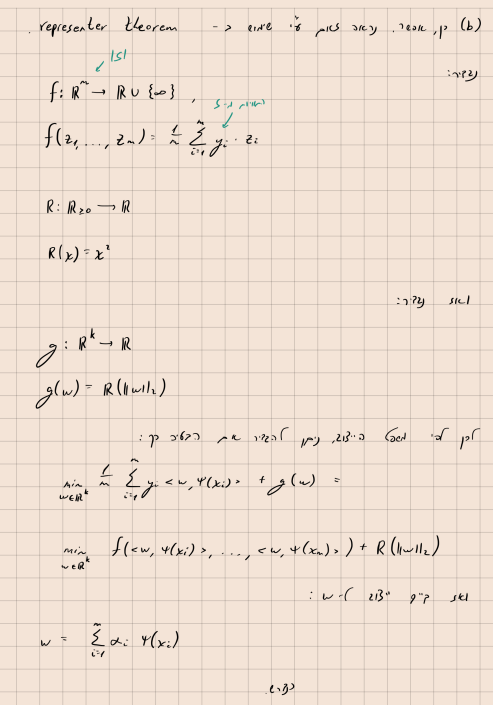 (b) כן, אפשר. נראה זאת ע"י שימוש ב- representer theorem.
נגדיר:
|S|
f: ℝ^m → ℝ ∪ {∞},
f(z₁, ..., z_m) = 1/m Σ_{i=1}^m y_i · z_i
R: ℝ≥0 → ℝ
R(x) = x²
ואז נגדיר:
g: ℝ^k → ℝ
g(w) = R(||w||₂)
לכן לפי משפט הייצוג, ניתן להגדיר את הבעיה כך:
min_{w∈ℝ^k} 1/m Σ_{i=1}^m y_i <w, Ψ(x_i)> + g(w) =
min_{w∈ℝ^k} f(<w, Ψ(x_i)>, ..., <w, Ψ(x_m)>) + R(||w||₂)
ואז קיים ייצוג ל-w:
w = Σ_{i=1}^m α_i Ψ(x_i)
כנדרש.